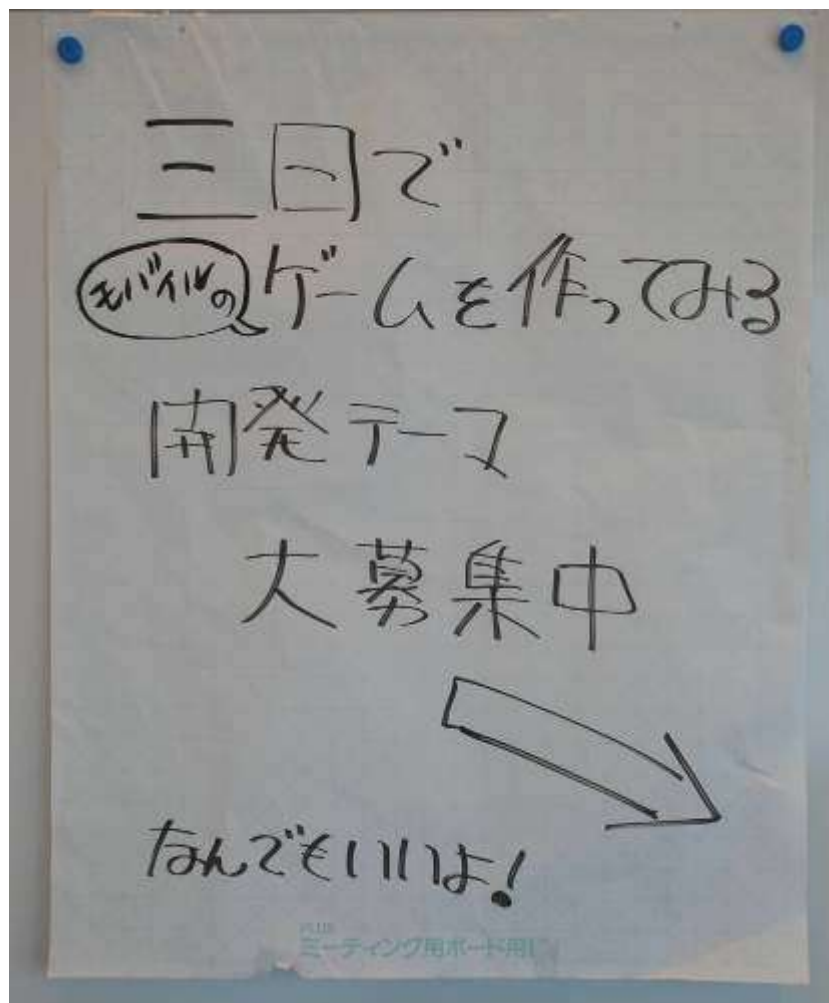 三日で
モバイルの ゲームを作ってみる
開発テーマ
大募集中
なんでもいいよ!
PLUS
ミーティング用ボード用